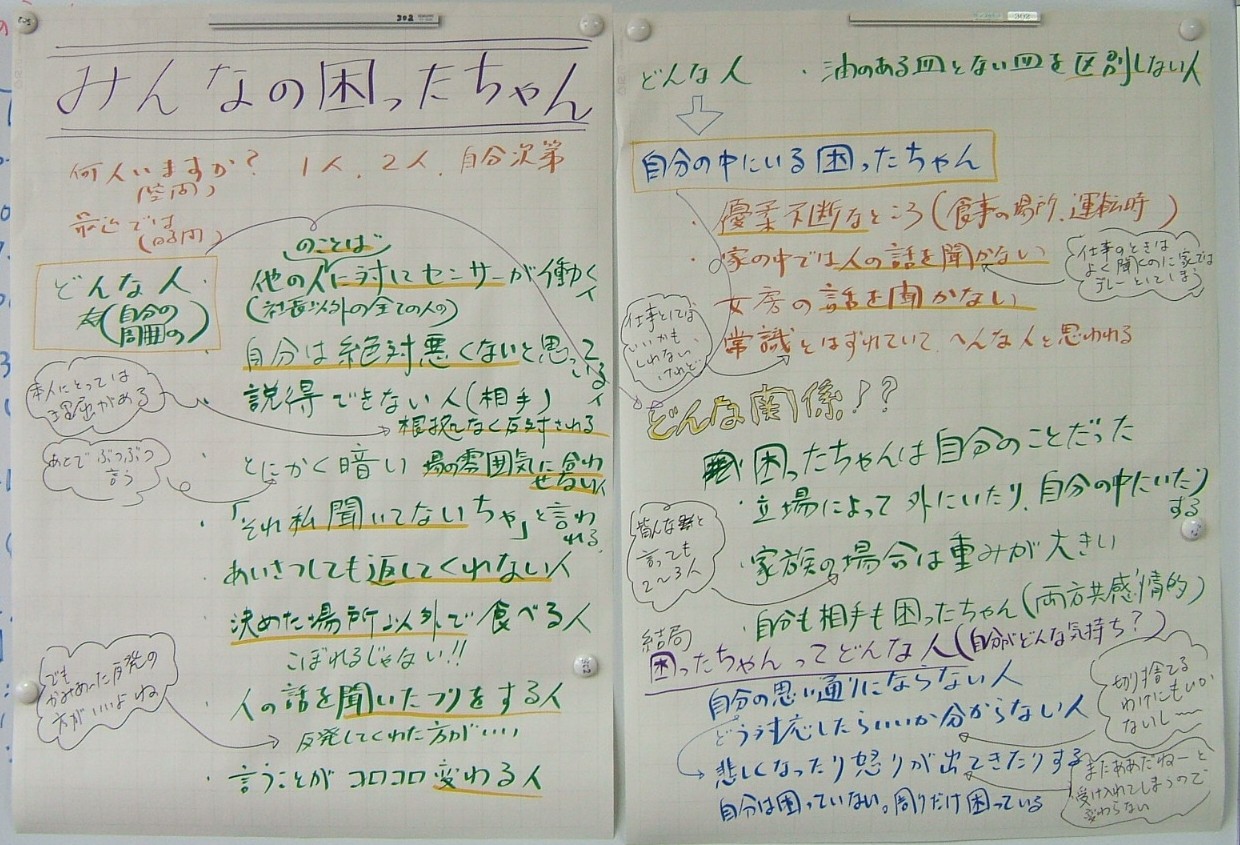 みんなの困ったちゃん
何人いますか? 1人、2人、自分次第
(質問)
最近では
どんな人
(自分の
周囲の)
のことば
他の人に対してセンサーが働く
人
(社長以外の全ての人の)
自分は絶対悪くないと思って
いる
人
説得できない人(相手)
根拠なく反対される
本人にとっては
理屈がある
とにかく暗い 場の雰囲気に合わ
せない人
あとでぶつぶつ
言う
・「それ私聞いてないちゃ」と言わ
れる
・あいさつしても返してくれない人
・決めた場所以外で食べる人
こぼれるじゃない!!
・人の話を聞いたフリをする人
反発してくれた方がいい
でも
かみあった反発の
方がいいよね
・言うことがコロコロ変わる人
どんな人 ・油のある皿とない皿を区別しない人
自分の中にいる困ったちゃん
・優柔不断なところ(食事の場所、運転時)
・家の中では人の話を聞かない
仕事のときは
よく聞くのに家では
グレーとしてしまう
女房の話を聞かない
常識とはずれていて、へんな人と思われる
仕事としては
いいかも
しれない、
けれど
どんな関係!?
困ったちゃんは自分のことだった
・立場によって外にいたり、自分の中にいたり
する
・家族の場合は重みが大きい
皆んなと
言っても
2~3人
・自分も相手も困ったちゃん(両方共感情的)
結局
困ったちゃんってどんな人(自分がどんな気持ち?)
自分の思い通りにならない人
どう対応したらいいか分からない人
切り捨てる
わけにもいか
ないし〜
悲しくなったり怒りが出てきたりする
自分は困っていない。周りだけ困っている
またああだねーと
受け入れてしまうので
変わらない